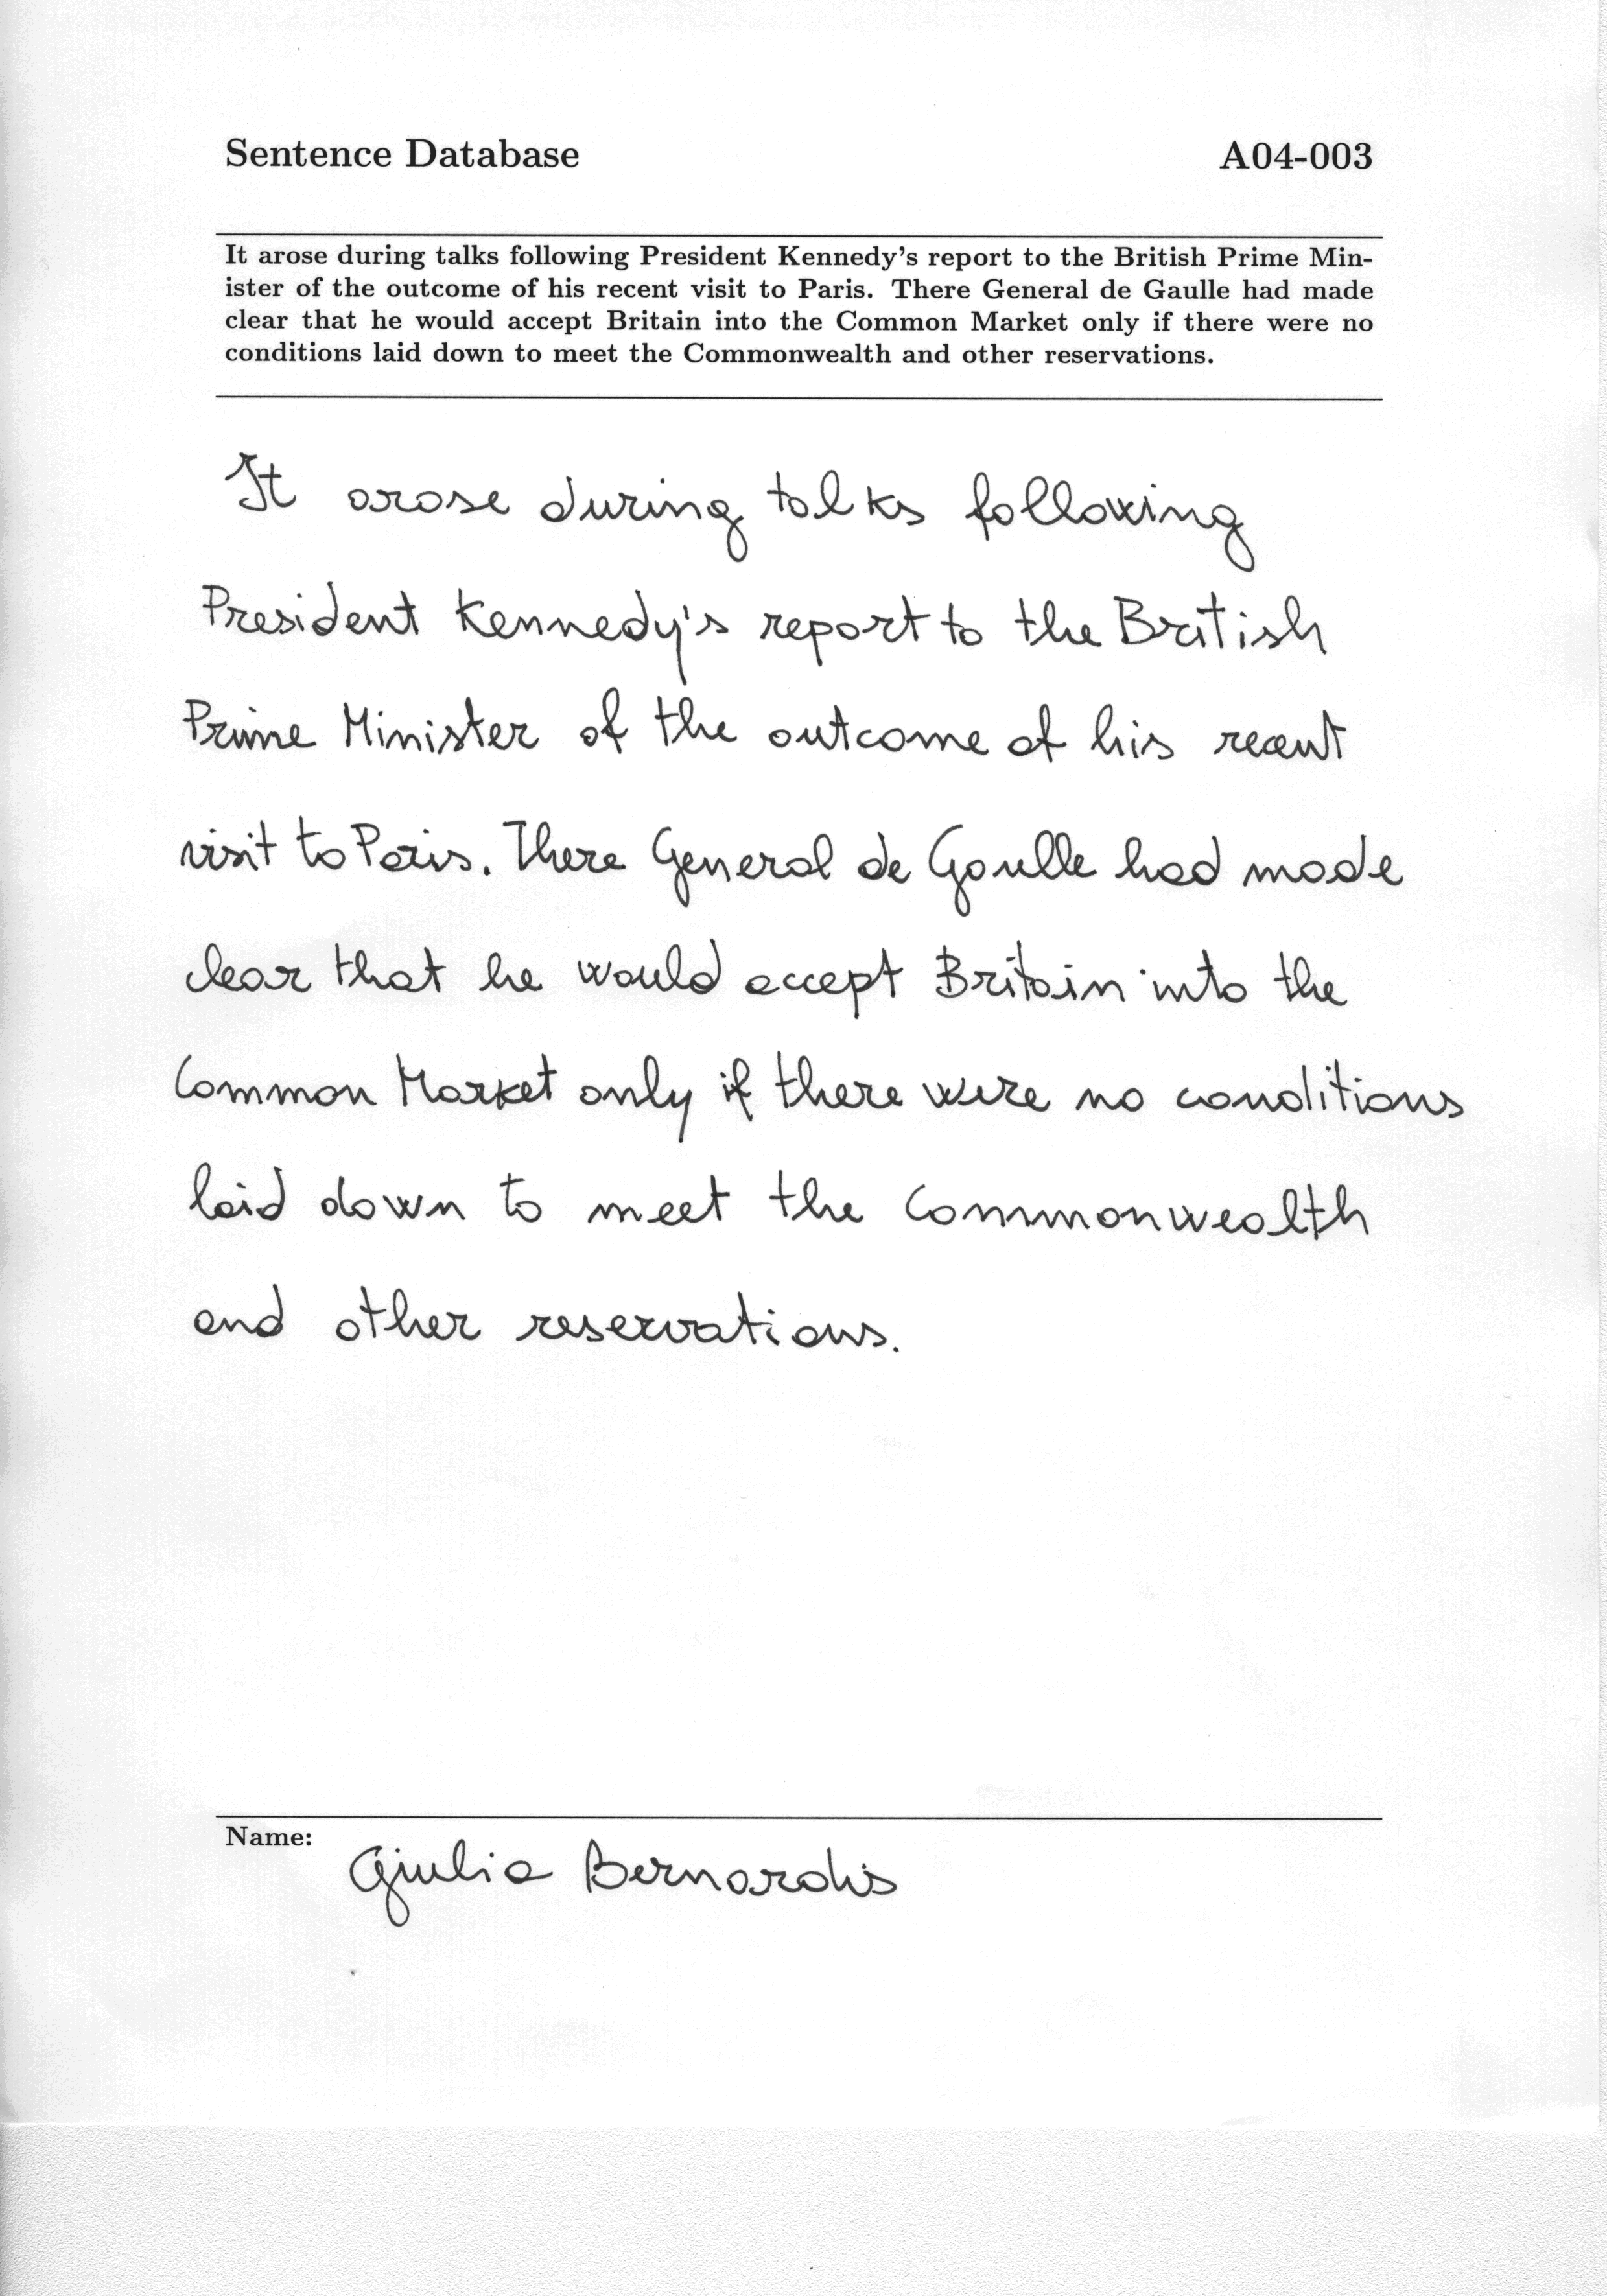 Sentence Database A04-003
It arose during talks following President Kennedy's report to the British Prime Min-
ister of the outcome of his recent visit to Paris. There General de Gaulle had made
clear that he would accept Britain into the Common Market only if there were no
conditions laid down to meet the Commonwealth and other reservations.
It arose during talks following
President Kennedy's report to the British
Prime Minister of the outcome of his recent
visit to Paris. There General de Gaulle had made
clear that he would accept Britain into the
Common Market only if there were no conditions
laid down to meet the Commonwealth
and other reservations.
Name: Giulia Bernardis